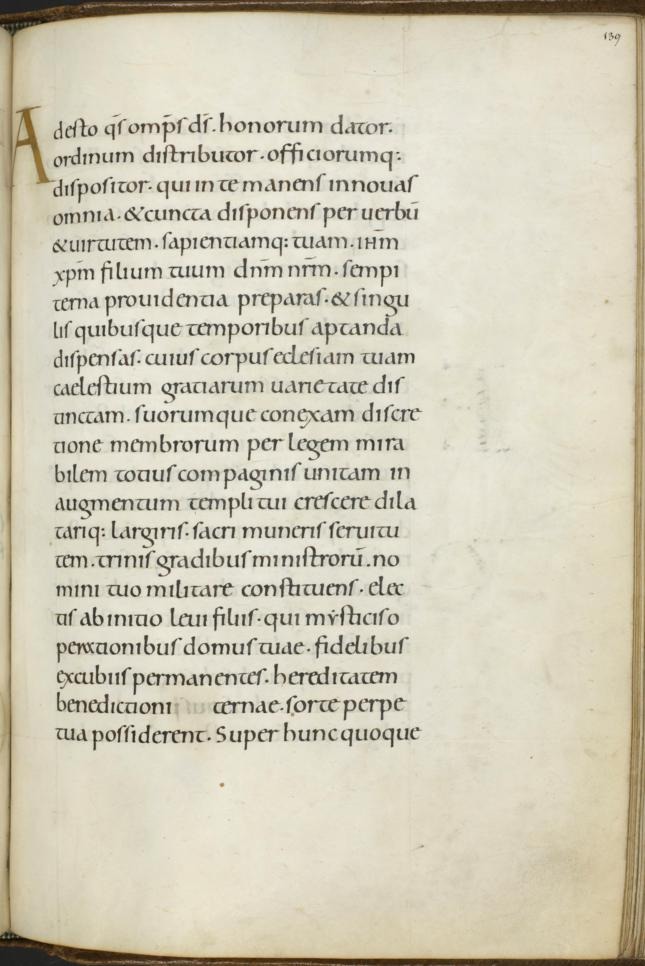 139
Adesto qs̄ omp̄s ds̄. honorum dator.
ordinum distributor. officiorumq:
dispositor. qui in te manens innouas
omnia. &cuncta disponens per uerbū
&uirtutem. sapientiamq: tuam. ih̄m
xp̄m filium tuum dn̄m nr̄m. sempi
terna prouidentia preparas. &singu
lis quibusque temporibus aptanda
dispensas. cuius corpus eclesiam tuam
caelestium gratiarum uarietate dis
tinctam. suorumque conexam discre
tione membrorum per legem mira
bilem totius compaginis unitam in
augmentum templi tui crescere dila
tariq: largiris. sacri muneris seruitu
tem. trinis gradibus ministrorū. no
mini tuo militare constituens. elec
tis ab initio leui filiis. qui mẏsticis o
perationibus domus tuae. fidelibus
excubiis permanentes. hereditatem
benedictioni ternae. sorte perpe
tua possiderent. Super hunc quoque